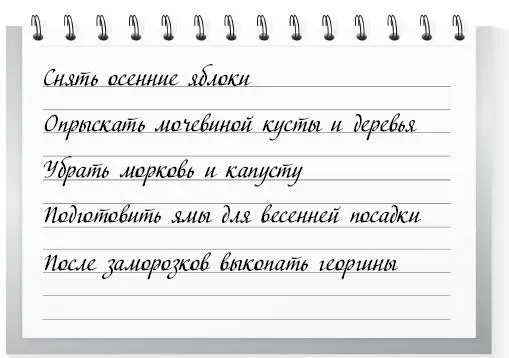 Снять осенние яблоки
Опрыскать мочевиной кусты и деревья
Убрать морковь и капусту
Подготовить ямы для весенней посадки
После заморозков выкопать георгины